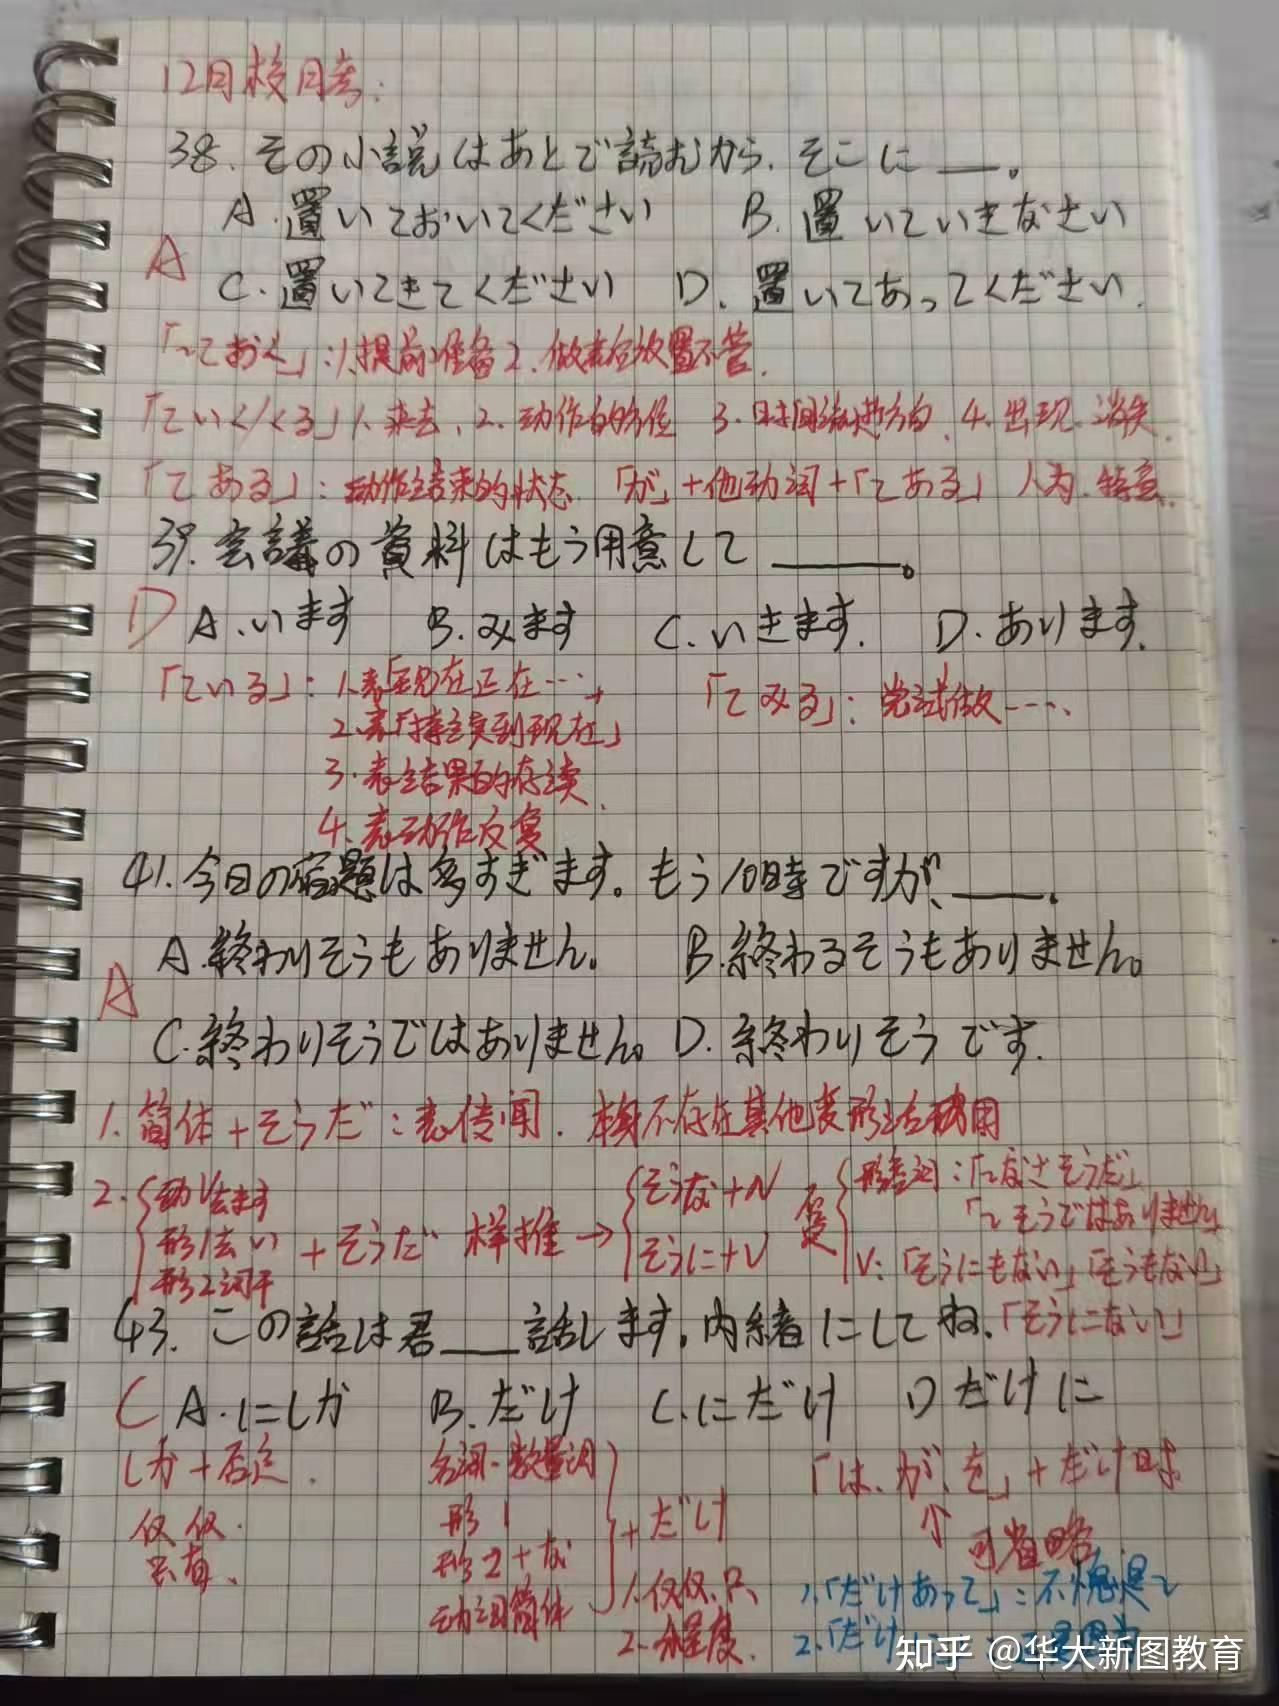 12月校月考:
38. その小説はあとで読むから、そこに ___。
A. 置いておいてください B. 置いていきなさい
A
C. 置いてきてください D. 置いてあってください.
「~ておく」: 1.提前准备 2. 做表后放置不管.
「ていく/くる」1. 来去、2. 动作的方位 3. 时间 趋方向. 4. 出现、消失.
「てある」: 动作结束的状态. 「が」+他动词+「てある」 人为. 特意.
39. 会議の資料はもう用意して ______。
D A. います B. みます C. いきます. D. あります.
「ている」: 1.表「现在正在…」 「てみる」: 尝试做……
2.表「持续到现在」
3.表结果的存续.
4.表动作反复
41. 今日の宿題は多すぎます。もう10時ですが、___.
A. 終わりそうもありません。 B. 終わるそうもありません。
A
C. 終わりそうではありません。 D. 終わりそうです.
1. 简体+そうだ:表传闻. 本身不存在其他变形活用
2. 动1去ます 形1去い 形2词干 +そうだ 样推→ そうな+N そうに+V 否定 形容词:「~なさそうだ」
「~そうではありません」
V:「そうにもない」「そうもない」
「そうにない」
43. この話は君___話します。内緒にしてね.
C A. にしか B. だけ C. にだけ D だけに
しか+否定. 名词、数量词 「は、が、を」+だけ时
仅仅. 形1 +だけ ↑可省略
只有. 形2+な
动词简体 1.仅仅.只、 1.「だけあって」: 不愧是~
2. 程度. 2.「だけ
知乎 @华大新图教育